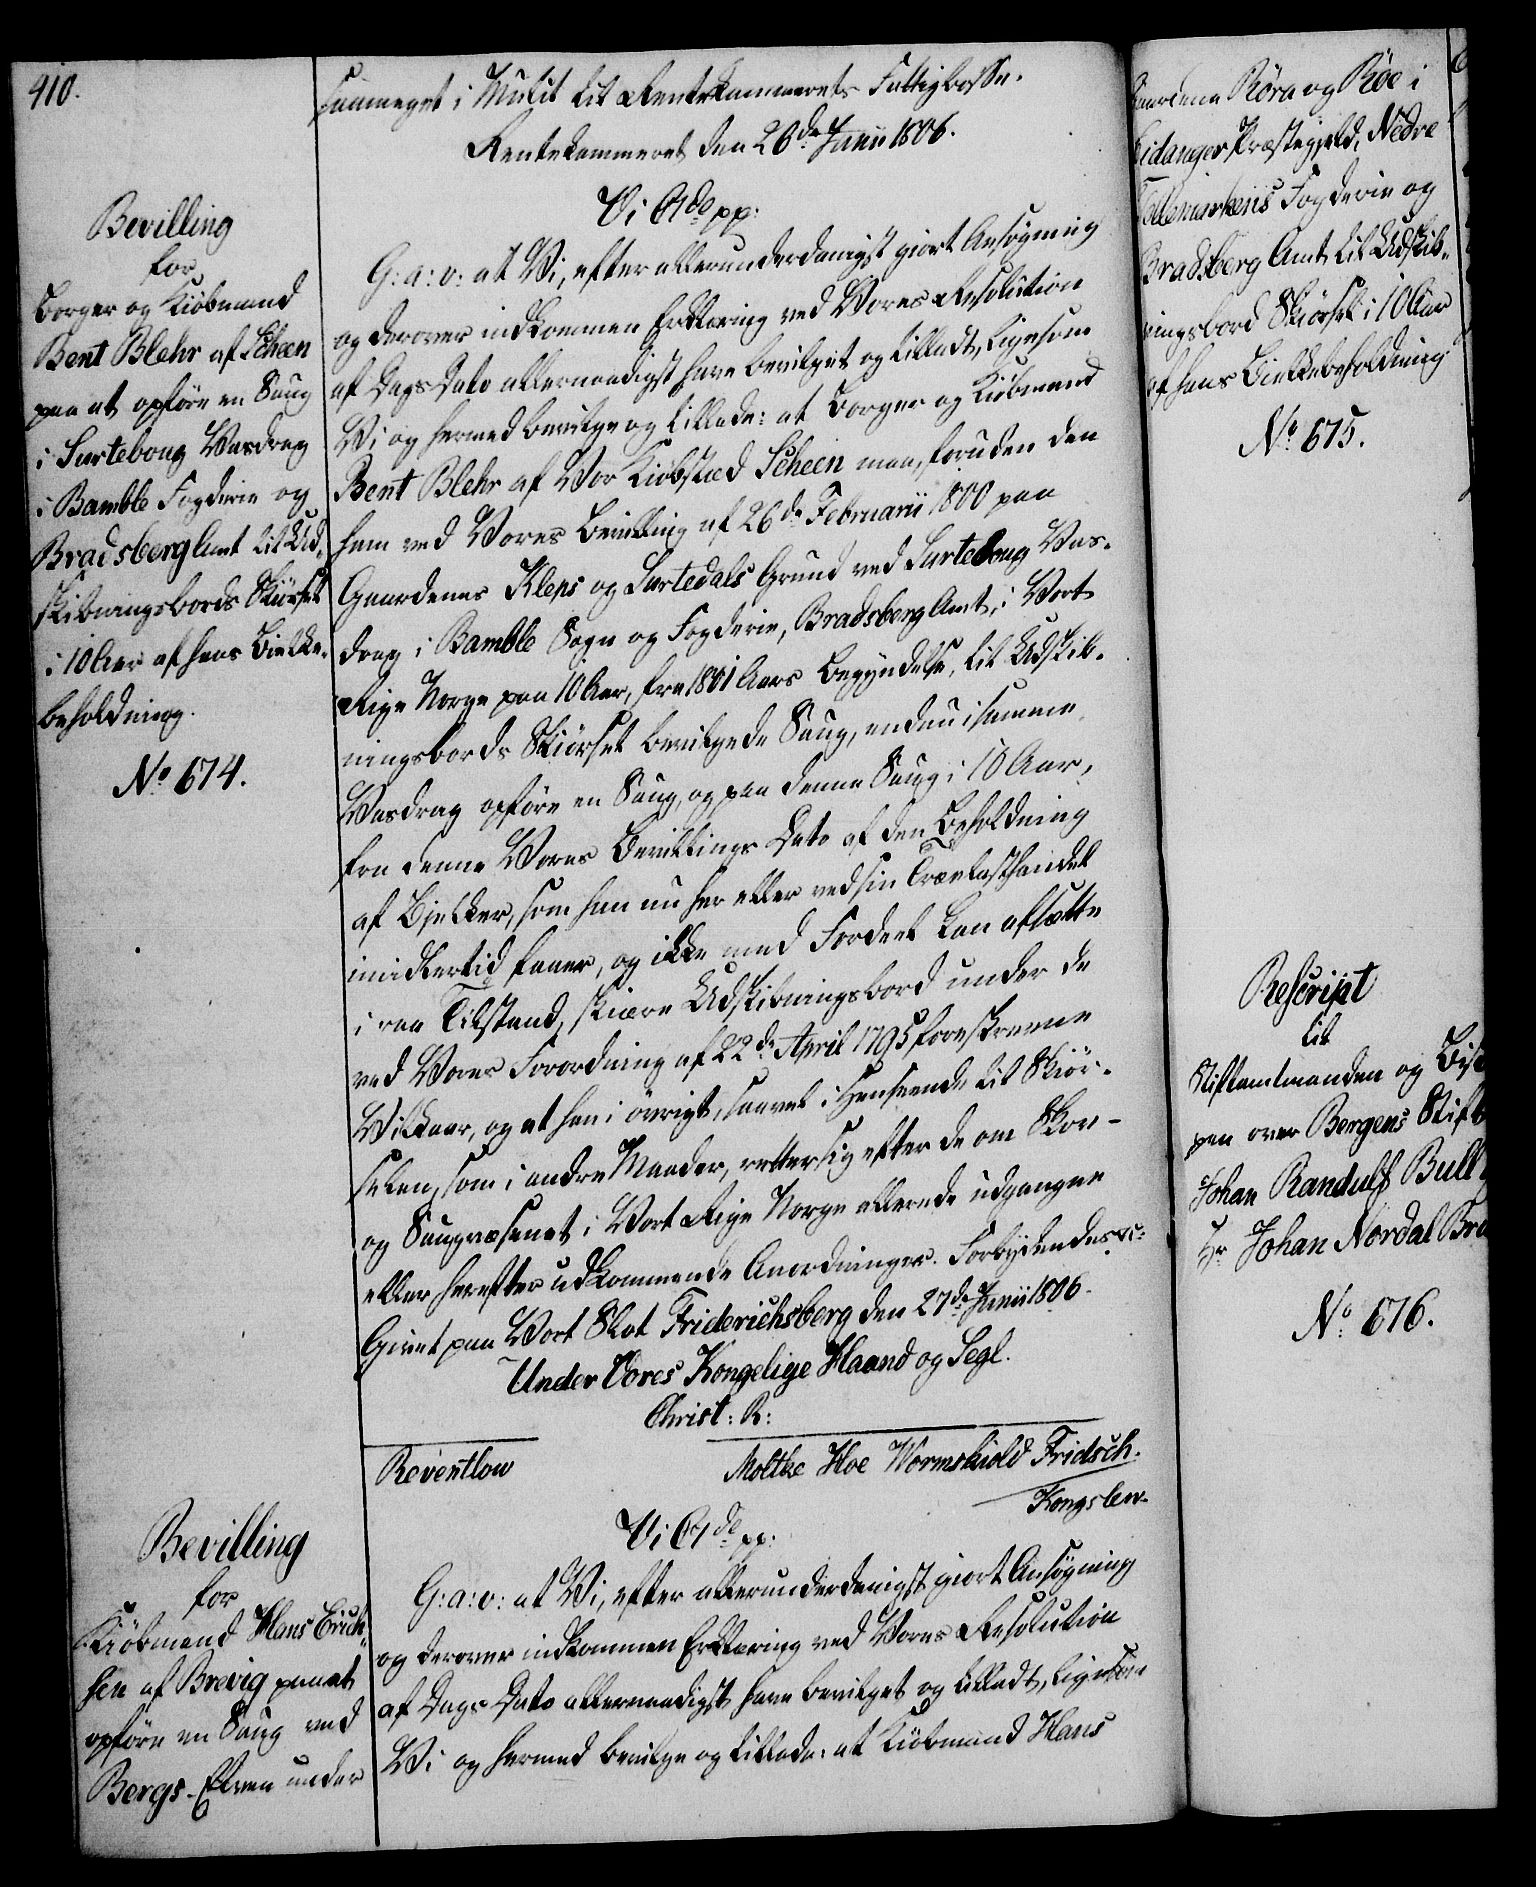 410.
saameget i Mulct til Rentekammerets Fattigbøsse.
Rentekammeret den 26de Junii 1806.
Bevilling
for
Borger og Kiöbmand
Bent Blehr af Scheen
paa at opföre en Saug
i Surteboug Vasdrag
i Bamble Fogderie og
Bradsberg Amt til Ud-
skibningsbords Skiørsel
i 10 Aar af hans Bielke-
beholdning.
No 674.
Vi C7de pp:
G: a: v: at Vi, efter allerunderdanigst giort Ansøgning
og derover indkommen Erklæring ved Vores Resolution
af Dags Dato allernaadigst have bevilget og tilladt, ligesom
Vi og hermed bevilge og tillade: at Borger og Kiöbmand
Bent Blehr af Vor Kiöbstæd Scheen maa, foruden den
ham ved Vores Bevilling af 26de Februarii 1800 paa
Gaardenes Kleps og Surtedals Grund ved Surteboug Vas-
drag i Bamble Sogn og Fogderie, Bradsberg Amt, i Vort
Rige Norge paa 10 Aar, fra 1801 Aars Begyndelse, til Udskib-
ningsbords Skiørsel bevilgede Saug, endnu i samme
Vasdrag opföre en Saug, og paa denne Saug i 10 Aar,
fra denne Vores Bevillings Dato af den Beholdning
af Bjelker, som han nu har eller ved sin Trælasthandel
imidlertid faaer, og ikke med Fordeel kan afsætte
i raa Tilstand, skiære Udskibningsbord under de
ved Vores Forordning af 22de April 1795 foreskrevne
Vilkaar, og at han i övrigt, saavel i Henseende til Skiør-
selen, som i andre Maader, retter sig efter de om Skov-
og Saugvæsenet i Vort Rige Norge allerede udgangne
eller herefter udkommende Anordninger. Forbydendes &c:
Givet paa Vort Slot Friderichsberg den 27de Junii 1806.
Under Vores Kongelige Haand og Segl.
Christ: R:
Reventlow
Moltke Hoe Wormskiold Fridsch.
Kongslew.
Bevilling
for
Kiöbmand Hans Erich-
sen af Brevig paa at
opföre en Saug ved
Bergs-Elven under
Vi C7de pp:
G: a: v: at Vi, efter allerunderdanigst giort Ansøgning
og derover indkommen Erklæring ved Vores Resolution
af Dags Dato allernaadigst have bevilget og tilladt, ligesom
Vi og hermed bevilge og tillade: at Kiöbmand Hans
Gaardene Röra og Röe i
Eidanger Præstegjeld, Nedre
Tellemarkens Fogderie og
Bradsberg Amt til Udskib-
ningsbord Skiörsel i 10 Aar
af hans Bielkebeholdning
No 675.
Rescript
til
Stiftamtmanden og Bis
pen over Bergens Stift
Johan Randulf Bull
Hr Johan Nordal Bru
No 676.